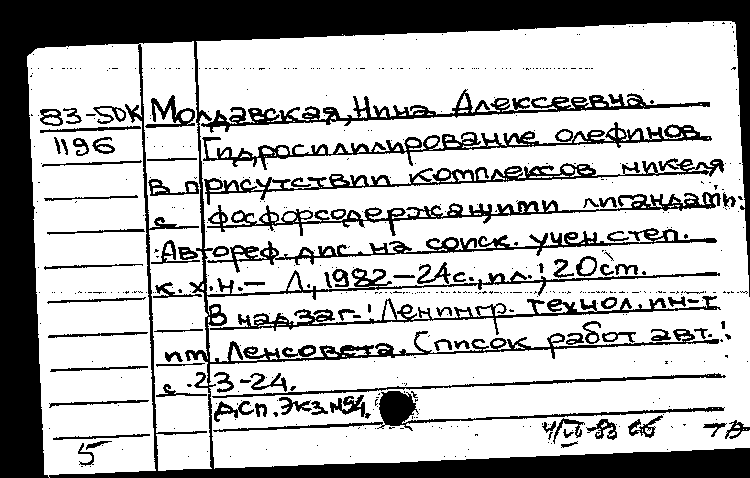 83-5DK Молдавская, Нина Алексеевна.
1196 Гидросилилирование олефинов
в присутствии комплексов никеля
с фосфорсодержащими лигандами:
:Автореф. дис. на соиск. учен. степ.
к. х. н. - Л., 1982. - 24 с., ил.; 20 см.
В надзаг.: Ленингр. технол. ин-т
им. Ленсовета. Список работ авт.:
с. 23-24.
Дсп. Экз. №54.
4/VI-83
5